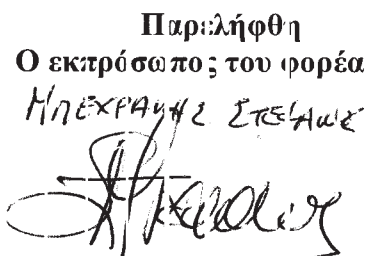 Παρελήφθη
Ο εκπρόσωπος του φορέα
ΜΠΕΧΡΑΚΗΣ ΣΤΕΦΑΝΟΣ